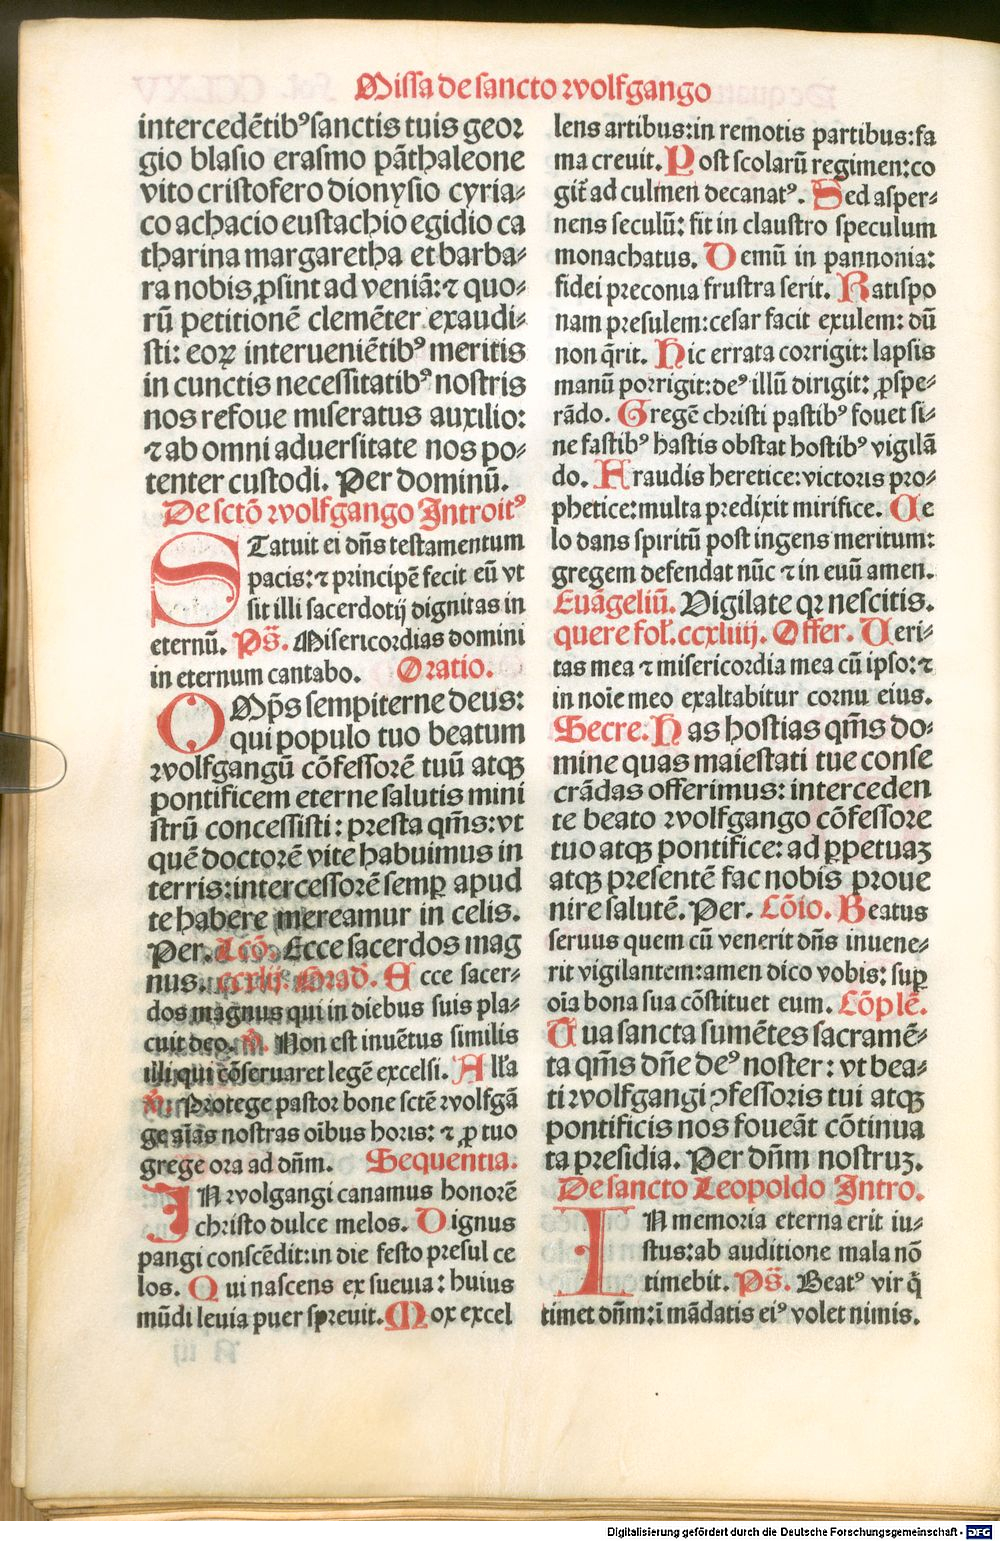 Missa de sancto wolfgango
intercedētibꝰ sanctis tuis geor
gio blasio erasmo pāthaleone
vito cristofero dionysio cyria-
co achacio eustachio egidio ca
tharina margaretha et barba-
ra nobis ꝓsint ad veniā: ⁊ quo-
rū petitionē clemēter exaudi-
sti: eoꝝ interueniētibꝰ meritis
in cunctis necessitatibꝰ nostris
nos refoue miseratus auxilio:
⁊ ab omni aduersitate nos po-
tenter custodi. Per dominū.
De sctō wolfgango Introitꝰ
STatuit ei dn̄s testamentum
pacis: ⁊ principē fecit eū vt
sit illi sacerdotij dignitas in
eternū. Ps̄. Misericordias domini
in eternum cantabo. Oratio.
OMp̄s sempiterne deus:
qui populo tuo beatum
wolfgangū cōfessorē tuū atqꝫ
pontificem eterne salutis mini
strū concessisti: presta qm̄s: vt
quē doctorē vite habuimus in
terris: intercessorē semꝑ apud
te habere mereamur in celis.
Per. Lcō. Ecce sacerdos mag
nus. ccxlij. Grad̄. Ecce sacer-
dos magnus qui in diebus suis pla-
cuit deo. ℣. Non est inuētus similis
illi: qui cōseruaret legē excelsi. All'a
℣. Protege pastor bone sctē wolfgā
ge aīas nostras oībus horis: ⁊ ꝓ tuo
grege ora ad dn̄m. Sequentia.
IN wolgangi canamus honorē
christo dulce melos. Dignus
pangi conscēdit: in die festo presul ce
los. Qui nascens ex sueuia: huius
mūdi leuia puer spreuit. Mox excel
lens artibus: in remotis partibus: fa
ma creuit. Post scolarū regimen: co
git̄ ad culmen decanatꝰ. Sed asper-
nens seculū: fit in claustro speculum
monachatus. Demū in pannonia:
fidei preconia frustra serit. Ratispo
nam presulem: cesar facit exulem: dū
non q̄rit. Hic errata corrigit: lapsis
manū porrigit: deꝰ illū dirigit: ꝓspe-
rādo. Gregē christi pastibꝰ fouet si-
ne fastibꝰ hastis obstat hostibꝰ vigilā
do. Fraudis heretice: victoris pro-
phetice: multa predixit mirifice. Ce
lo dans spiritū post ingens meritum:
gregem defendat nūc ⁊ in euū amen.
Euāgeliū. Vigilate qꝛ nescitis.
quere fol. ccxliiij. Offer. Veri-
tas mea ⁊ misericordia mea cū ipso: ⁊
in noīe meo exaltabitur cornu eius.
Secre. Has hostias qm̄s do-
mine quas maiestati tue conse
crādas offerimus: interceden
te beato wolfgango cōfessore
tuo atqꝫ pontifice: ad ꝑpetuaꝫ
atqꝫ presentē fac nobis proue
nire salutē. Per. Cōio. Beatus
seruus quem cū venerit dn̄s inuene-
rit vigilantem: amen dico vobis: suꝑ
oīa bona sua cōstituet eum. Cōplē.
Tua sancta sumētes sacramē-
ta qm̄s dn̄e deꝰ noster: vt bea-
ti wolfgangi ↄfessoris tui atqꝫ
pontificis nos foueāt cōtinua
ta presidia. Per dn̄m nostruꝫ.
De sancto Leopoldo Intro.
IN memoria eterna erit iu-
stus: ab auditione mala nō
timebit. Ps̄. Beatꝰ vir q̄
timet dn̄m: ī mādatis eiꝰ volet nimis.
Digitalisierung gefördert durch die Deutsche Forschungsgemeinschaft - DFG